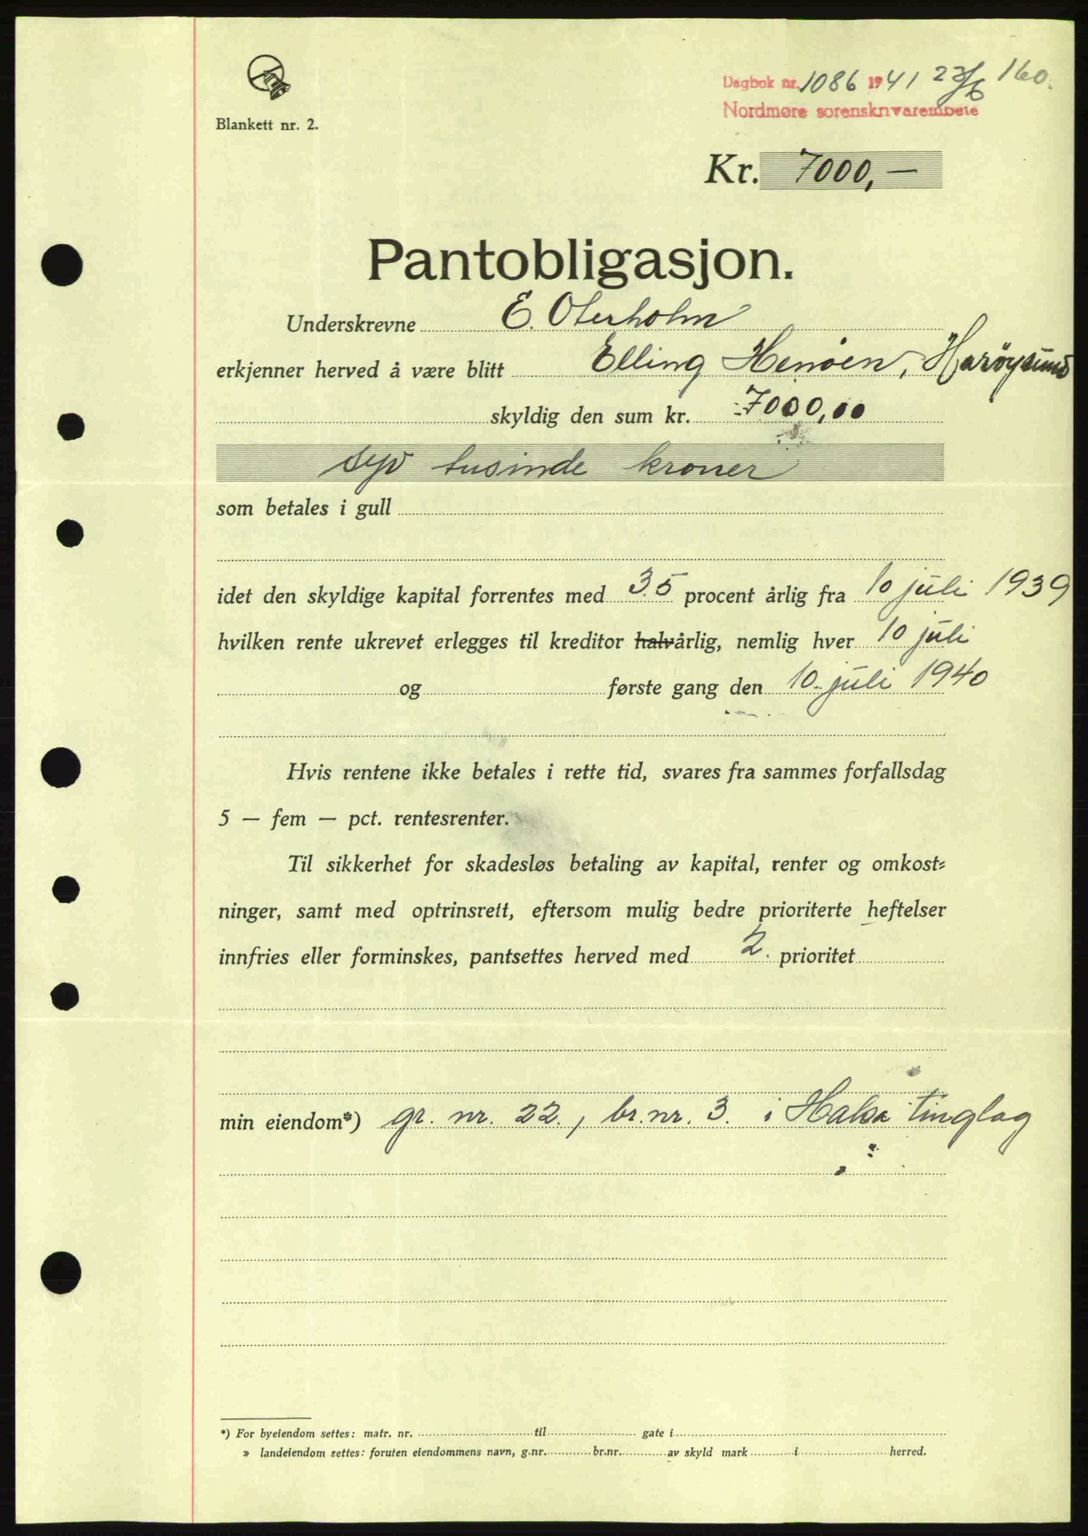 Dagbok nr. 1086 1941 23/6 160.
Nordmøre sorenskriverembete
Blankett nr. 2.
Kr. 7000,—
Pantobligasjon.
Underskrevne E. Oterholm
erkjenner herved å være blitt Elling Henøen, Harøysund
skyldig den sum kr. 7000,00
syv tusinde kroner
som betales i gull
idet den skyldige kapital forrentes med 3.5 procent årlig fra 10 juli 1939
hvilken rente ukrevet erlegges til kreditor halvårlig, nemlig hver 10 juli
og første gang den 10. juli 1940
Hvis rentene ikke betales i rette tid, svares fra sammes forfallsdag
5 — fem — pct. rentesrenter.
Til sikkerhet for skadesløs betaling av kapital, renter og omkost-
ninger, samt med optrinsrett, eftersom mulig bedre prioriterte heftelser
innfries eller forminskes, pantsettes herved med 2. prioritet
min eiendom*) gr. nr. 22., br. nr. 3. i Halsa tinglag
*) For byeiendom settes: matr. nr. til gate i
» landeiendom settes: foruten eiendommens navn, g.nr. br.nr. av skyld mark i herred.